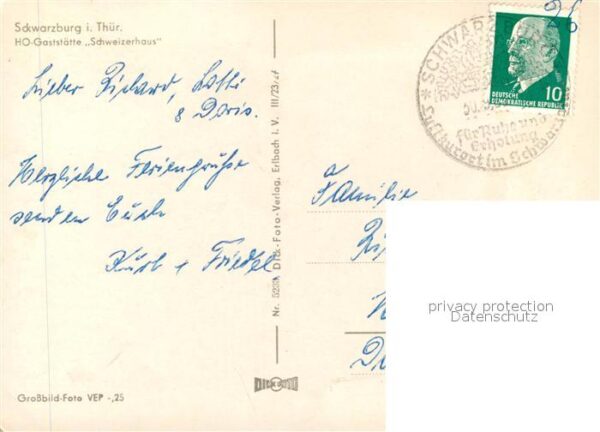 Schwarzburg i. Thür.
HO-Gaststätte „Schweizerhaus"
Lieber Richard, Lotti
& Doris.
Herzliche Feriengrüße
senden Euch
Kurt + Friedel
Großbild-Foto VEP -,25
Dick-Foto-Verlag, Erlbach i. V. III/23/
DICK FOTO
26
SCHWARZ
für Ruhe und
Erholung
Luftkurort im Schwarza
10
DEUTSCHE
DEMOKRATISCHE REPUBLIK
Familie
privacy protection
Datenschutz